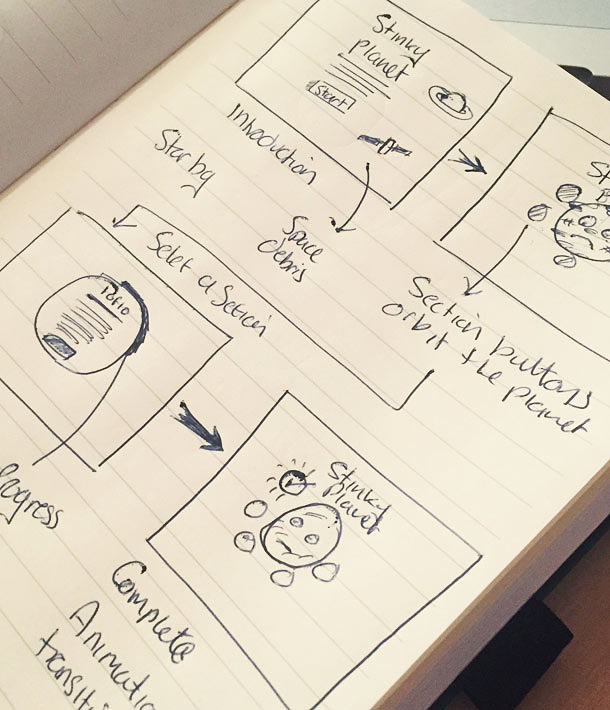 Stinky
planet
Start
Introduction
Star bg
Space
debris
St
Section buttons
orbit the planet
Select a Section
Topic
Progress
Stinky
planet
Complete
Animatio
transiti